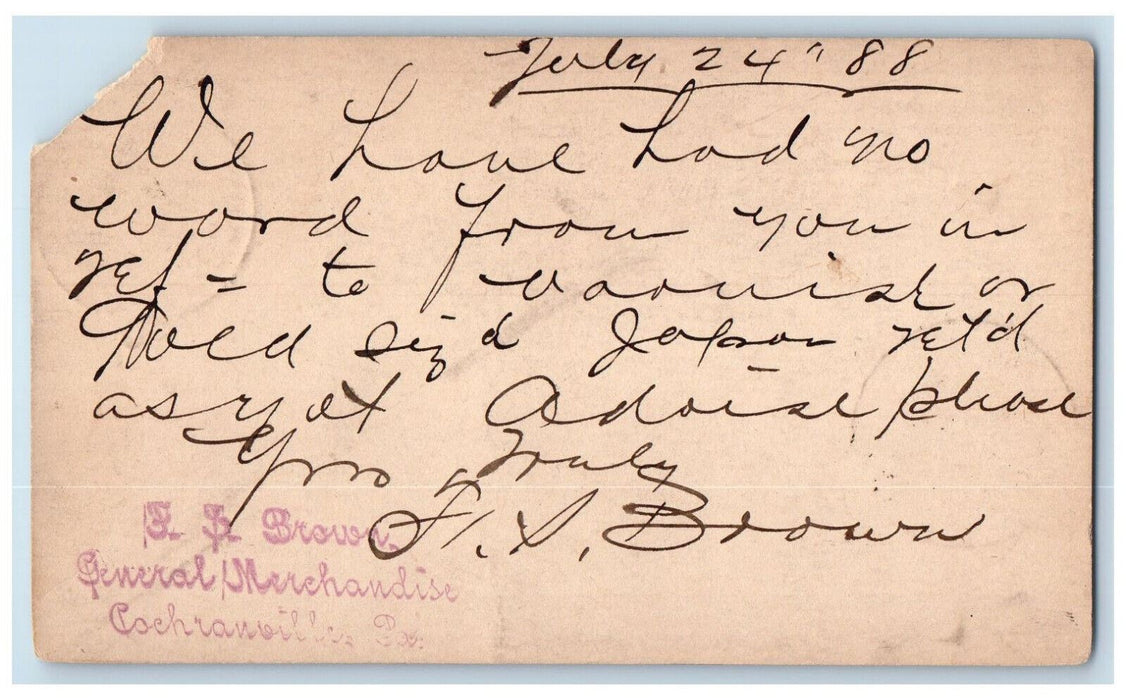 July 24" 88
We have had no
word from you in
ref = to varnish or
Gold siz'd Japan ret'd
as yet Advise please
Yrs Truly
F. S. Brown
Brown
General Merchandise
Cochranville, Pa.